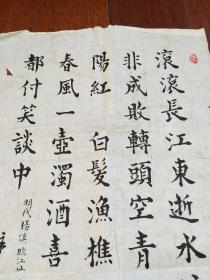 滾滾長江東逝水
非成敗轉頭空青
陽紅 白髮漁樵
春風一壺濁酒喜
都付笑談中
明代 楊慎 臨江仙